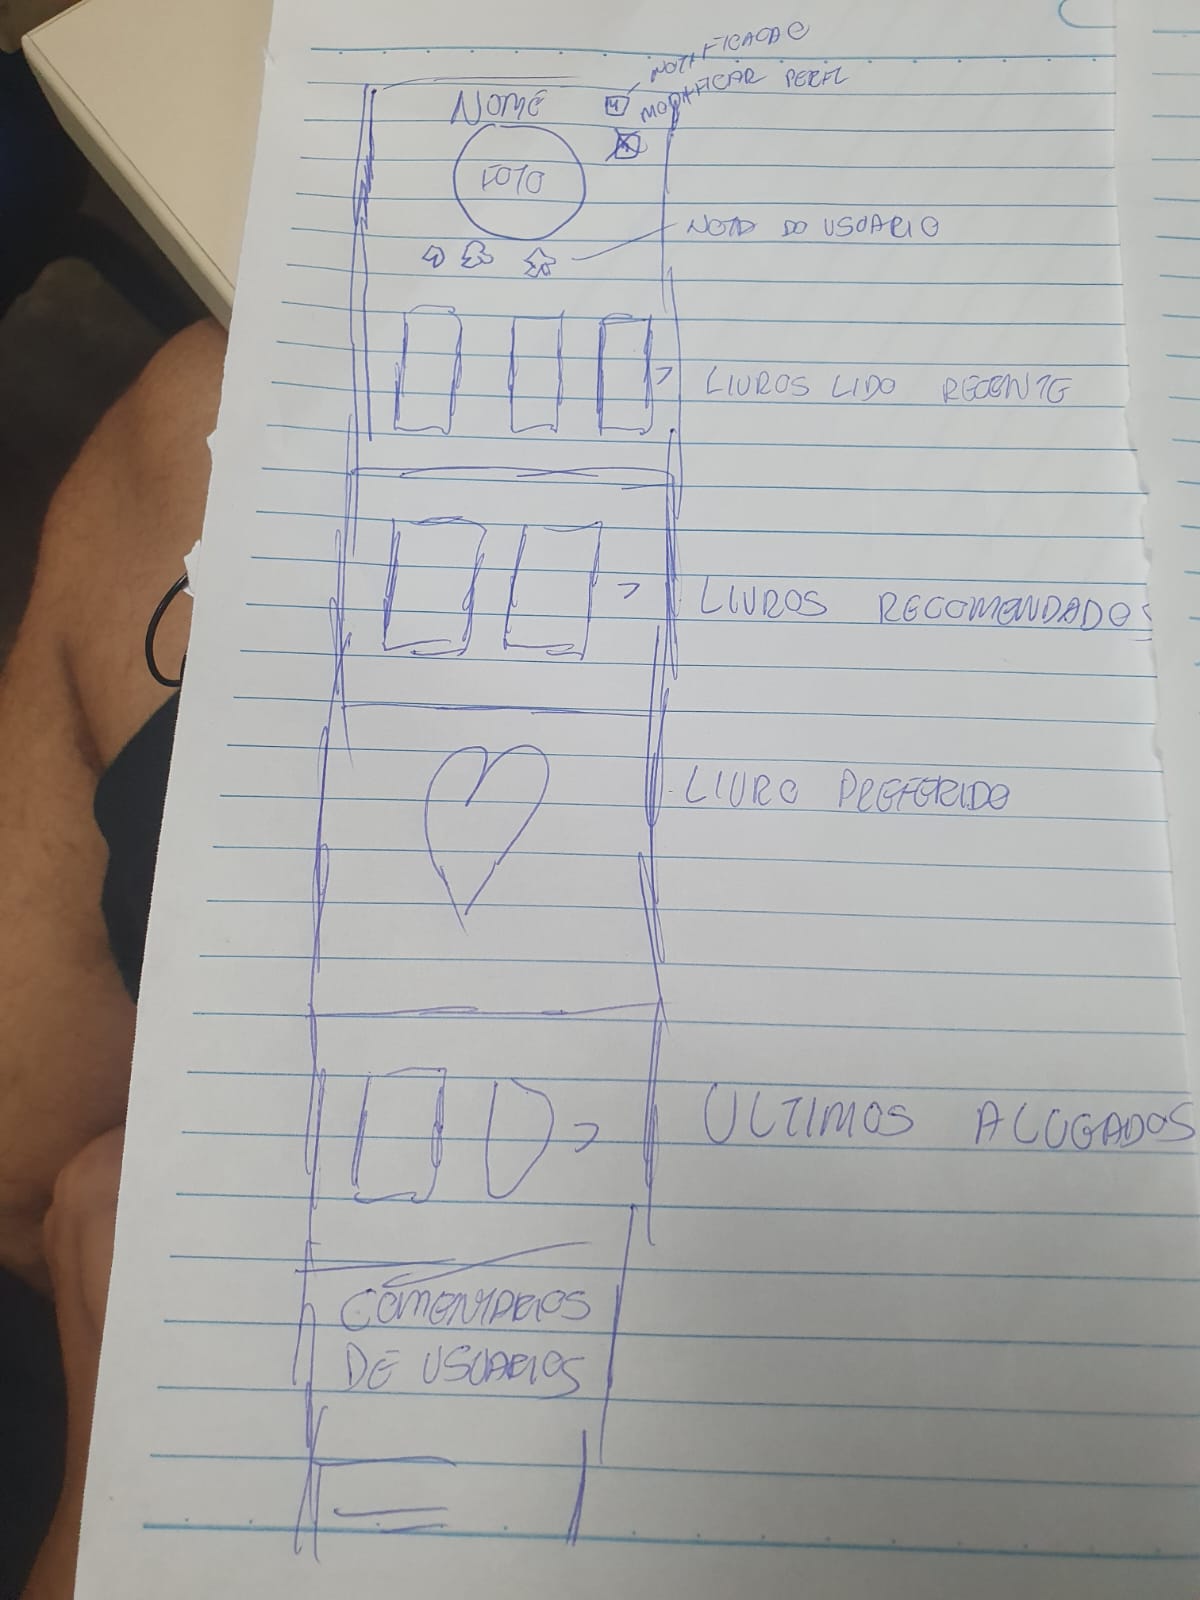 NOTIFICACAO
MODIFICAR PERFIL
NOME
FOTO
NOTA DO USUARIO
LIVROS LIDO RECENTE
LIVROS RECOMENDADOS
LIVRO PREFERIDO
ULTIMOS ALUGADOS
COMENTARIOS
DE USUARIOS